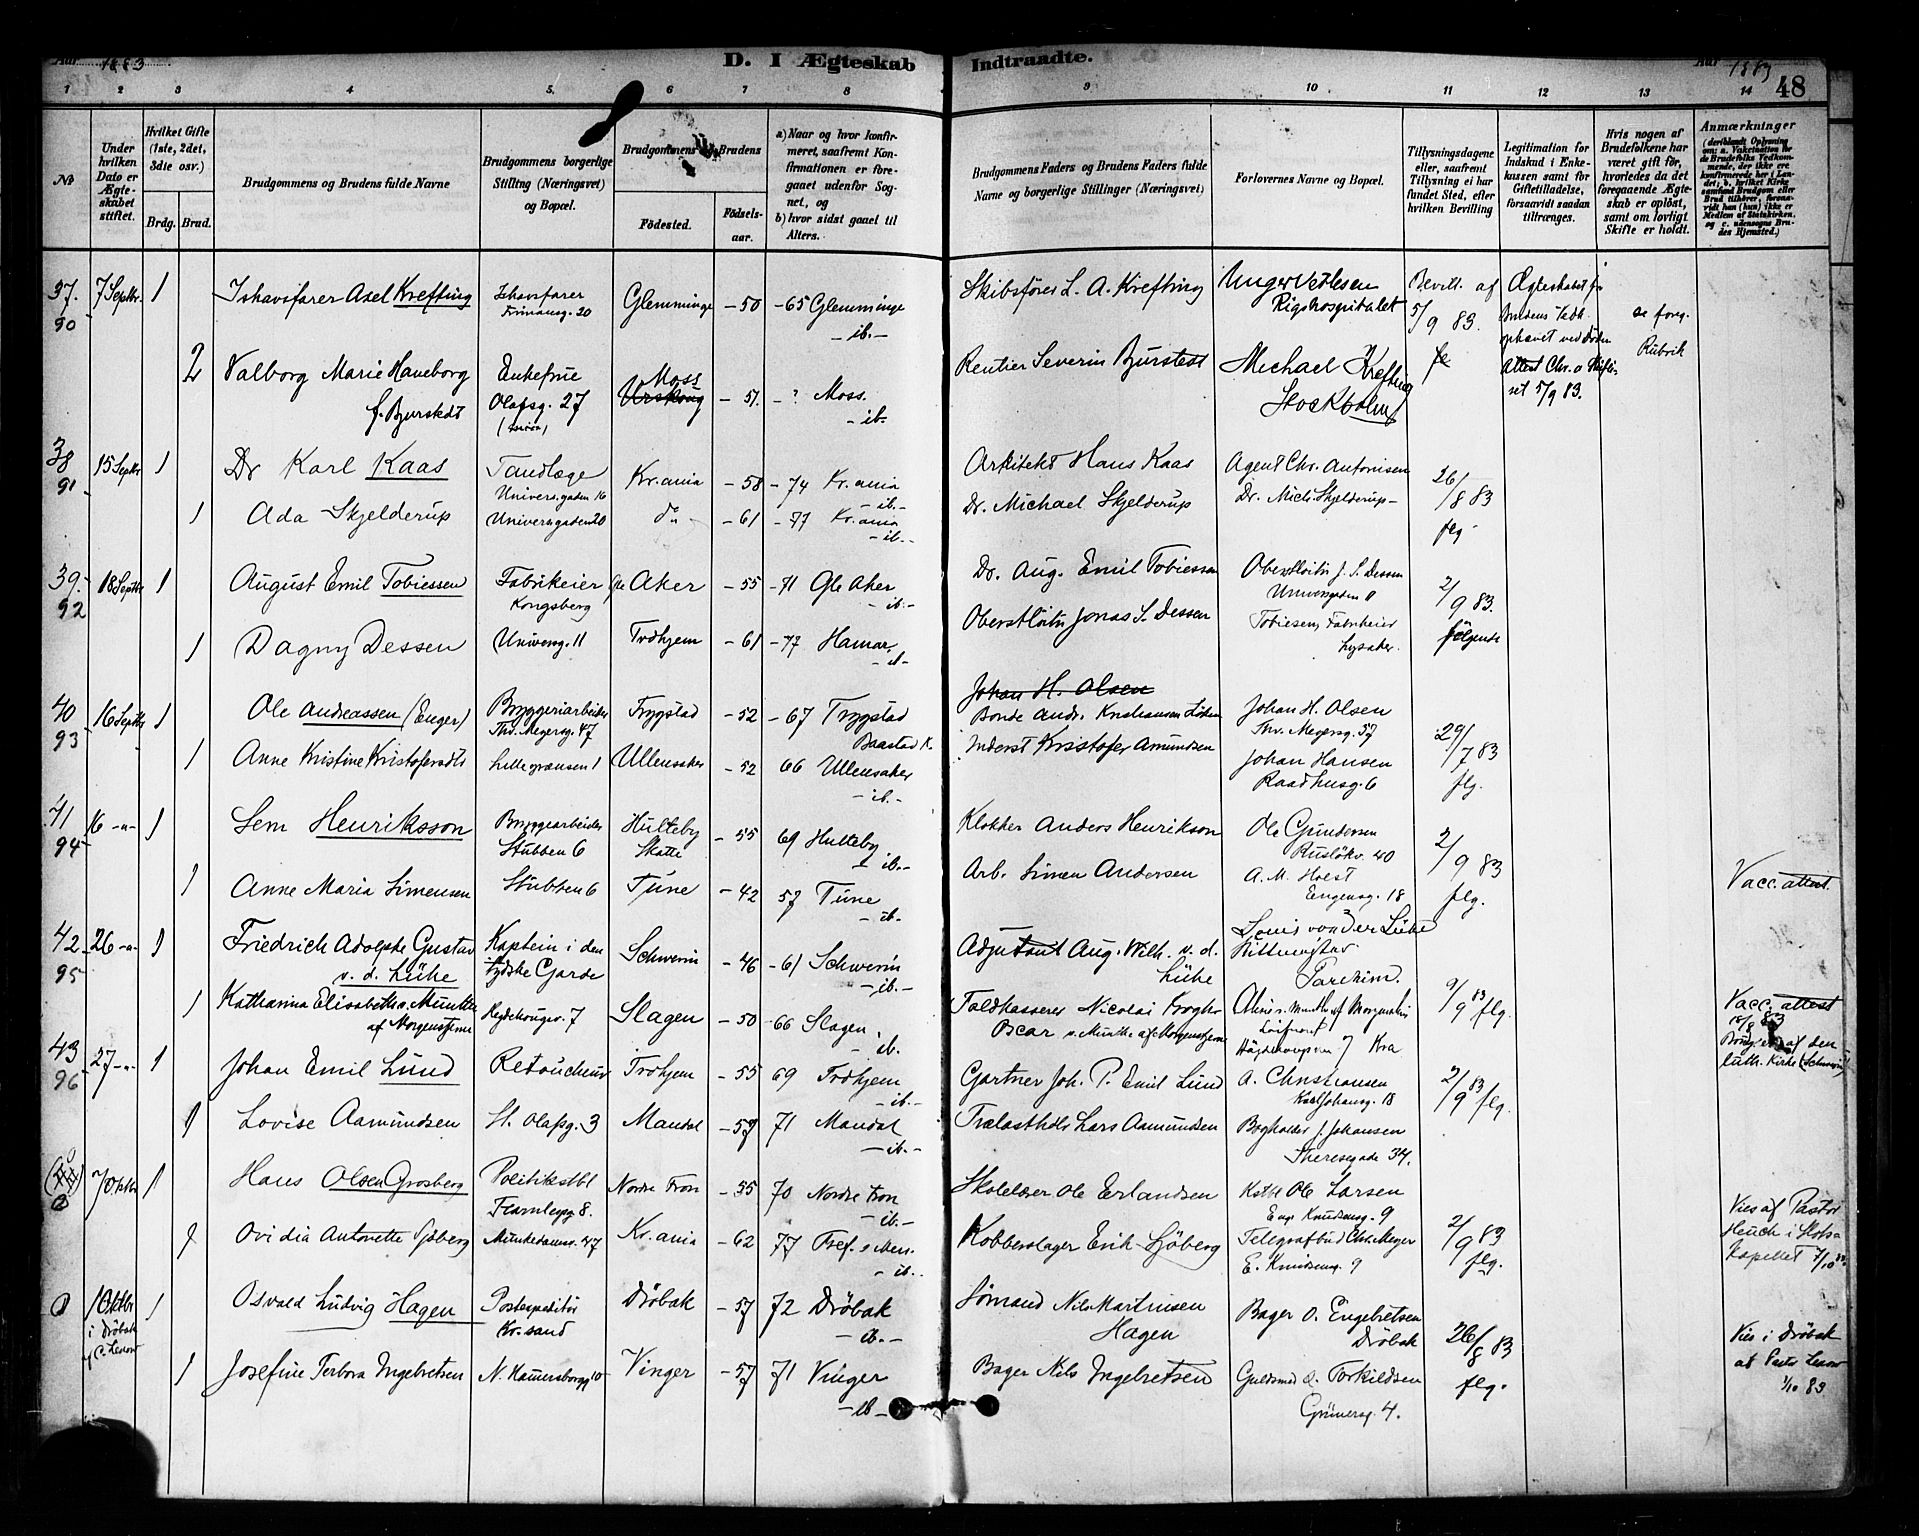 Aar 1883 D. I Ægteskab Indtraadte. Aar 1883 48
1 2 3 4 5. 6 7 8 9 10 11 12 13 14
No
Under hvilken Dato er Ægteskabet stiftet.
Hvilket Gifte (1ste, 2det, 3die osv.)
Brdg. Brud.
Brudgommens og Brudens fulde Navne
Brudgommens borgerlige Stilling (Næringsvei) og Bopæl.
Brudgommens og Brudens
Fødested. Fødselsaar.
a) Naar og hvor konfirmeret, saafremt Konfirmationen er foregaaet udenfor Sognet, og
b) hvor sidst gaaet til Alters.
Brudgommens Faders og Brudens Faders fulde Navne og borgerlige Stillinger (Næringsvei)
Forlovernes Navne og Bopæl.
Tillysningsdagene eller, saafremt Tillysning ei har fundet Sted, efter hvilken Bevilling
Legitimation for Indskud i Enkekassen samt for Giftetilladelse, forsaavidt saadan tiltrænges.
Hvis nogen af Brudefolkene har været gift før, hvorledes da det foregaaende Ægteskab er opløst, samt om lovligt Skifte er holdt.
Anmærkninger
37. 90 7 Septbr. 1 Ishavsfarer Axel Krefting Ishavsfarer 20 Glemminge -50 -65 Glemminge -ib.- Skibsfører L. A. Krefting Unger Vetlesen Rigshospitalet Bevill. af 5/9 83. Ægteskabet f. Brudens Vedk. ophævet ved Døden se foreg. Rubrik
2 Valborg Marie Haneborg f. Bjurstedt Enkefrue Olafsg. 27 Moss Urskoug -51. -? Moss. -ib.- Rentier Severin Bjurstedt Michael Krefting Stockholm Attest Chr.a Skifteret 5/9 83.
38 91 15 Septbr 1 Dr Karl Kaas Tandlæge Univers.gaden 16 Kr.ania -58 -74 Kr.ania -ib.- Arkitekt Hans Kaas Agent Chr. Antonisen 26/8 83 flg.
1 Ada Skjelderup Universgaden 20 do -61 -77 Kr.ania -ib.- Dr. Michael Skjelderup Dr. Mich. Skjelderup-
39. 92 18 Septbr 1 August Emil Tobiessen Fabrikeier Kongsberg Gle Aker -55 -71 Gle Aker -ib.- Dr. Aug. Emil Tobiessen Oberstløitn J. S. Dessen Universgaden 11 2/9 83. følgende
1 Dagny Dessen Universg. 11 Trdhjem -61 -77 Hamar. -ib- Oberstløitn Jonas S. Dessen Tobiesen, Fabrikeier Lysaker.
40 93 16 Septbr 1 Ole Andreassen (Enger) Bryggeriarbeider Thv. Meyersg. 47 Trygstad -52 -67 Trygstad Baastad K. Johan H. Olsen Bonde Andr. Kristiansen Johan H. Olsen Thv. Meyersg. 57 29/7 83 flg.
1 Anne Kristine Kristofersdtr Lille grænsen 1 Ullensaker -52 66 Ullensaker -ib.- Inderst Kristofer Amundsen Johan Hansen Raadhusg. 6
41 94 16 -"- 1 Sem Henriksson Bryggearbeider Stubben 6 Hulteby Skatte -55 69 Hulteby -ib.- Klokker Anders Henrikson Ole Gundersen Rusløkv. 40 2/9 83 flg.
1 Anne Maria Simensen Stubben 6 Tune -42 57 Tune -ib- Arb. Simen Andersen A. M. Holst Engensg. 18 Vacc. attest.
42 95 26 -"- 1 Friedrich Adolphe Gustav v. d. Lühe Kaptein i den tydske Garde Schwerin -46 -61 Schwerin -ib.- Adjutant Aug. Wilh. v. d. Lühe Louis von der Lühe Rittmeister Parchim. 9/9 83 flg.
1 Katharina Elisabeth v. Munthe af Morgenstierne 7 Slagen -50 -66 Slagen. -ib. Toldkasserer Nicolai Krogh Oscar v. Munthe af Morgenstjerne Hägdehougsvn 7 Kra Vacc. attest 18/8 83 af den luth. Kirke (Schwerin)
43 96 27 -"- 1 Johan Emil Lund Retoucheur Trdhjem -55 69 Trdhjem -ib.- Gartner Joh. P. Emil Lund A. Christiansen Karl Johansg. 18 2/9 83 flg.
1 Lovise Aamundsen St. Olafsg. 3 Mandal -57 71 Mandal -ib.- Trælasthdlr Lars Aamundsen Bogholder J. Johansen Theresegade 34.
(44) 0 7 Oktbr 1 Hans Olsen Grosberg Politikstbl 8. Nordre Fron -55 70 Nordre Fron -ib- Skolelærer Ole Erlandsen Kstbl Ole Larsen Knudsensg. 9 2/9 83 flg. Vies af Pastor Heuch i Slotskapellet 7/10 83
1 Ovidia Antonette Sjöberg Munkedamsv. 47 Kr.ania -62 77 Tref. s Men. -ib.- Kobberslager Erik Sjöberg Telegrafbud Chr. Meyer E. Knudsensg. 9
0 1 Oktbr i Drøbak af C. Lexow 1 Osvald Ludvig Hagen Postexpeditør Kr.sand Drøbak -57 72 Drøbak -ib.- Sømand Nils Martinsen Hagen Bager O. Engebretsen Drøbak 26/8 83 flg. Vies i Drøbak af Pastor Lexow 1/10 83
1 Josefine Terbora Ingebretsen N. Hammersborgg 10 Vinger -57 71 Vinger -ib- Bager Nils Ingebretsen Guldsmed A. Torkildsen Grünersg. 4.